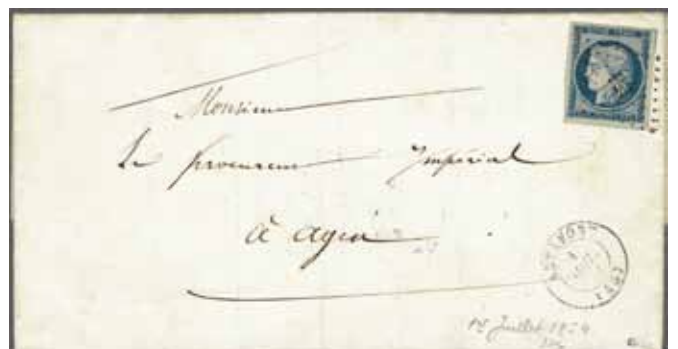 Monsieur
Le procureur Impérial
à agen
(45)
1er Juillet 1854